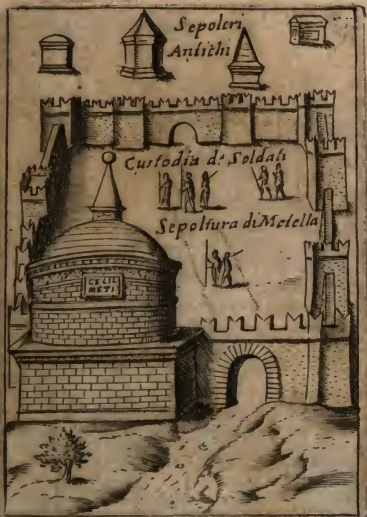 Sepolcri
Antichi
Custodia de Soldati
Sepoltura di Metella
CECIL
METI